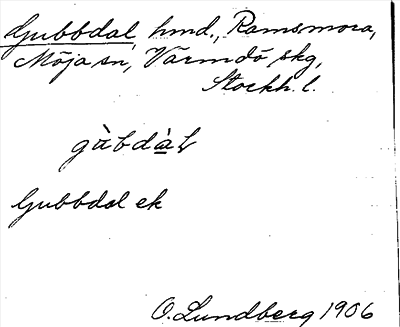 Gubbdal, hmd., Ramsmora,
Möja sn, Värmdö skg,
Stockh. l.
gùbdàl
Gubbdal ek
O. Lundberg 1906